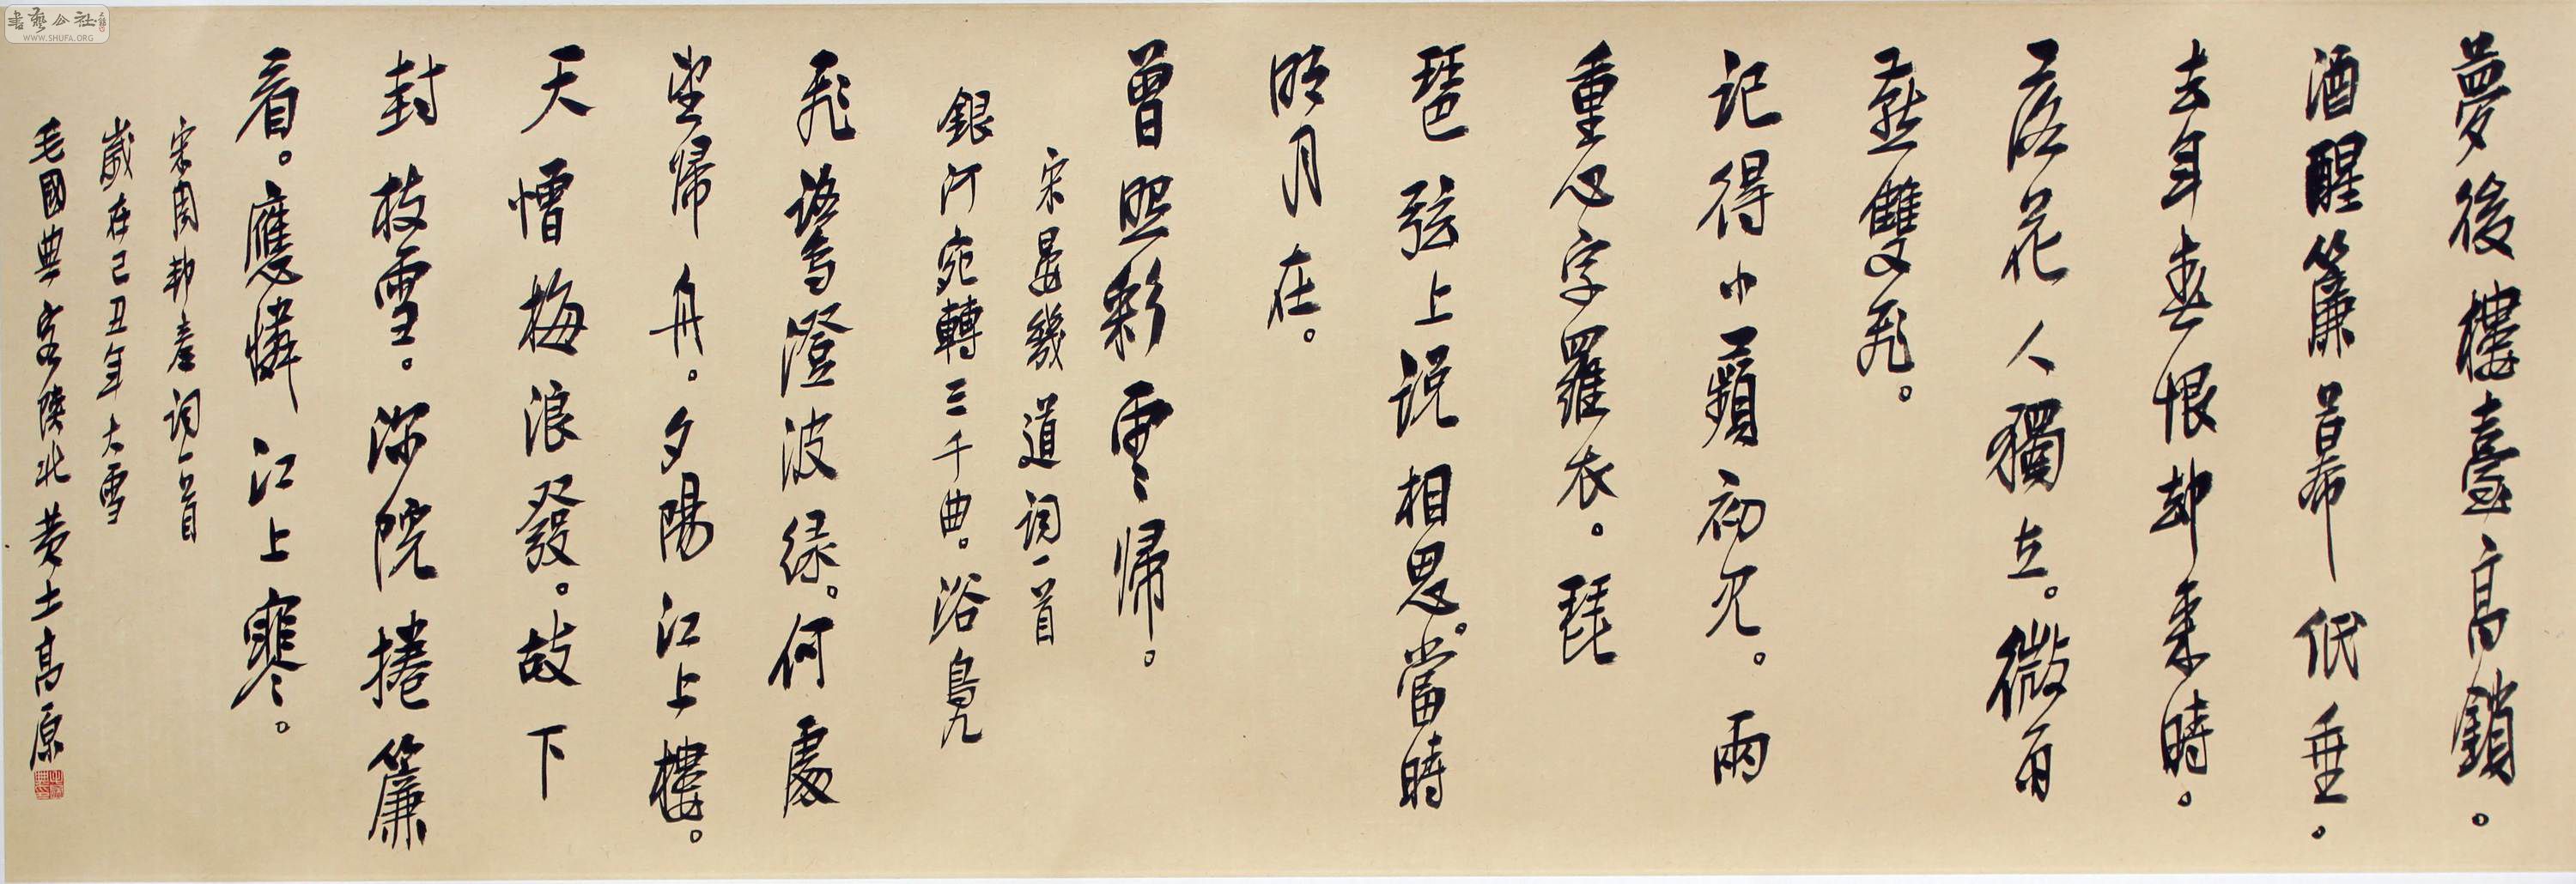 書藝公社
WWW.SHUFA.ORG
夢後樓臺高鎖。
酒醒簾幕低垂。
去年春恨却来時。
落花人獨立。微雨
燕雙飛。
记得小蘋初见。兩
重心字羅衣。琵
琶弦上说相思。當時
明月在。
曾照彩雲歸。
宋晏幾道词一首
銀河宛轉三千曲。浴鳧
飛鹭澄波绿。何處
望歸舟。夕陽江上樓。
天憎梅浪發。故下
封枝雪。深院捲簾
看。應憐江上寒。
宋周邦彦词一首
歲在己丑年大雪
毛國典客陝北黄土高原